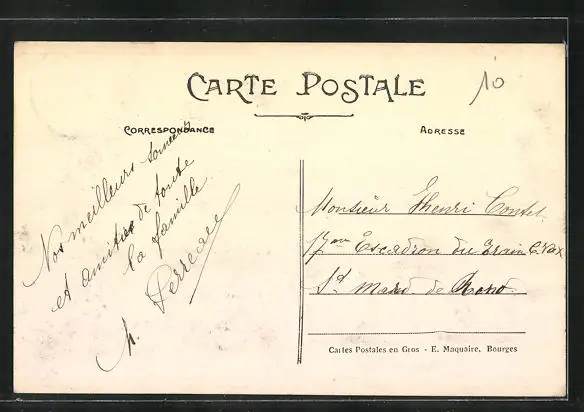 CARTE POSTALE
10
CORRESPONDANCE
ADRESSE
Nos meilleurs souvenirs
et amitiés de toute
la famille
M. Perreau
Monsieur Henri
17eme Escadron du Train
St Mard de
Cartes Postales en Gros - E. Maquaire, Bourges